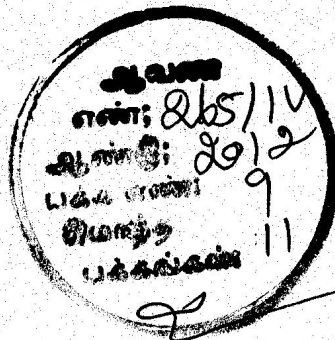 ஆவண
எண்: 265/IV
ஆண்டு: 2012
பக்க எண்: 9
மொத்த
பக்கங்கள்: 11